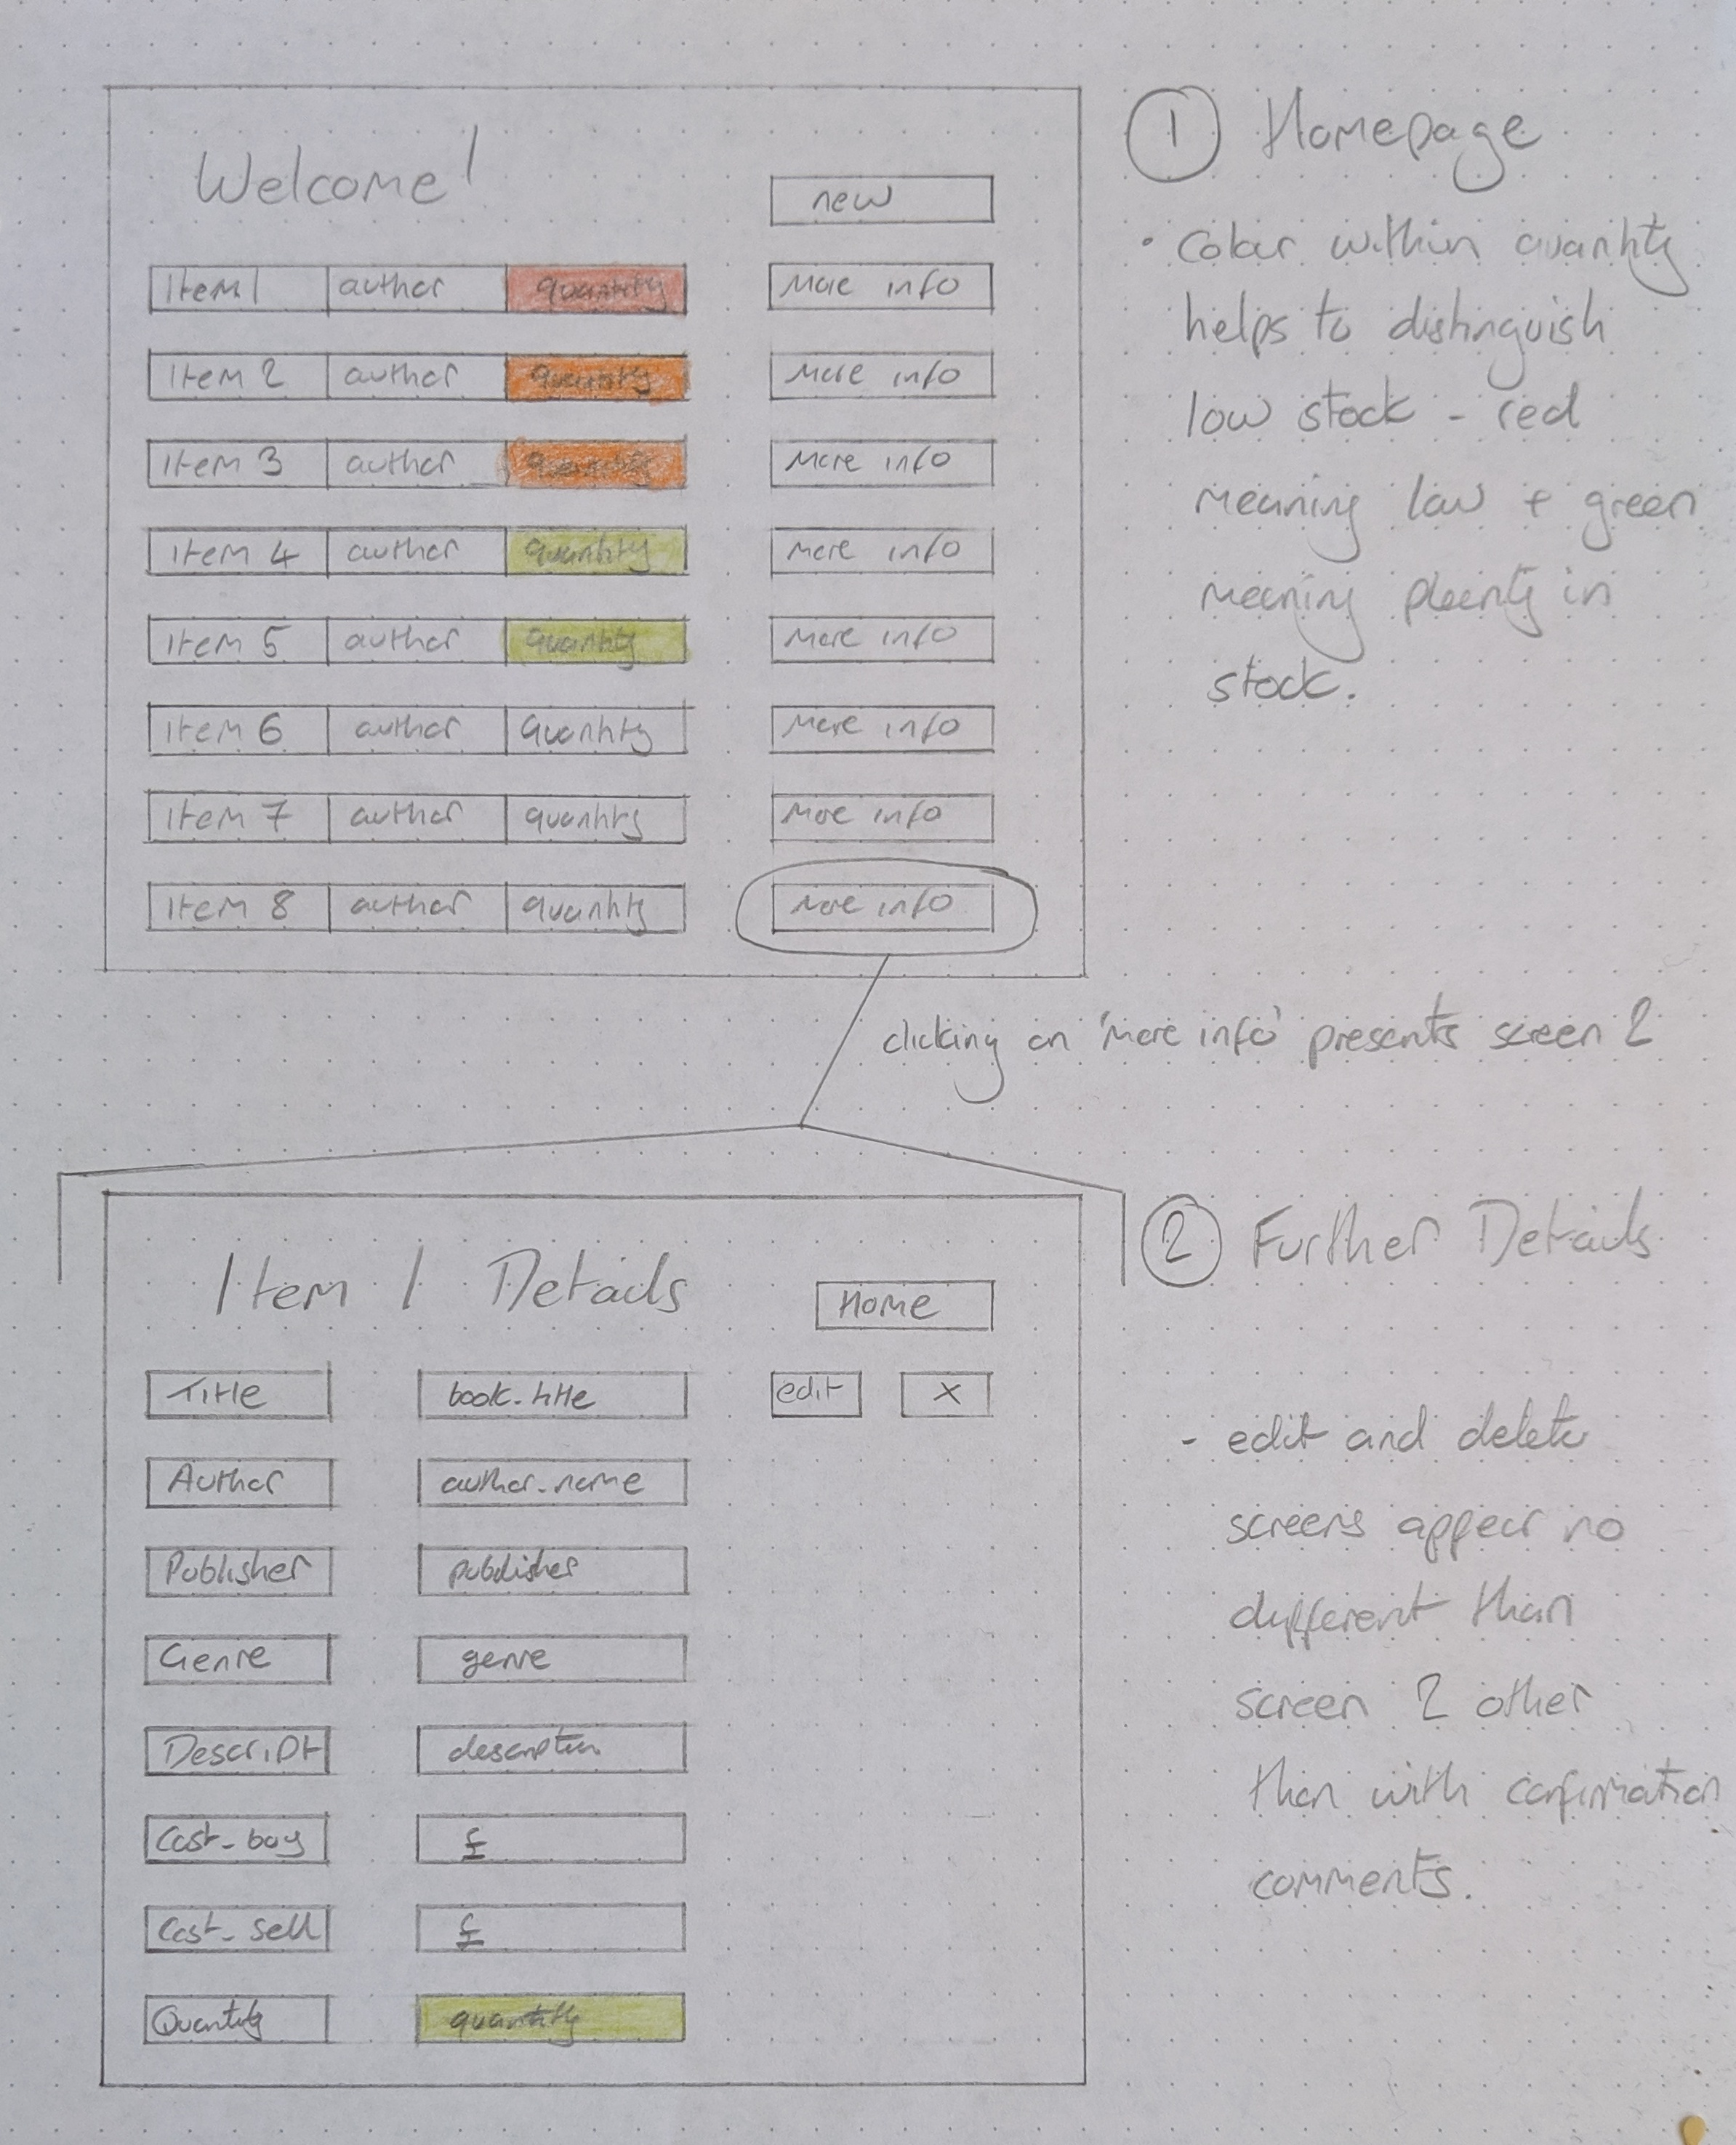 Welcome!
new
Item 1 author quantity More info
Item 2 author quantity More info
Item 3 author quantity More info
Item 4 author quantity More info
Item 5 author quantity More info
Item 6 author quantity More info
Item 7 author quantity More info
Item 8 author quantity More info
1 Homepage
• Colour within quantity
helps to distinguish
low stock - red
meaning low + green
meaning plenty in
stock.
clicking on 'more info' presents screen 2
Item 1 Details
Home
Title book_title edit x
Author author_name
Publisher publisher
Genre genre
Descript description
Cost_buy £
Cost_sell £
Quantity quantity
2 Further Details
- edit and delete
screens appear no
different than
screen 2 other
than with confirmation
comments.